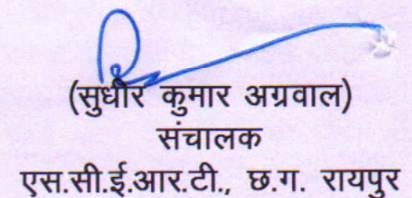 (सुधीर कुमार अग्रवाल)
संचालक
एस.सी.ई.आर.टी., छ.ग. रायपुर